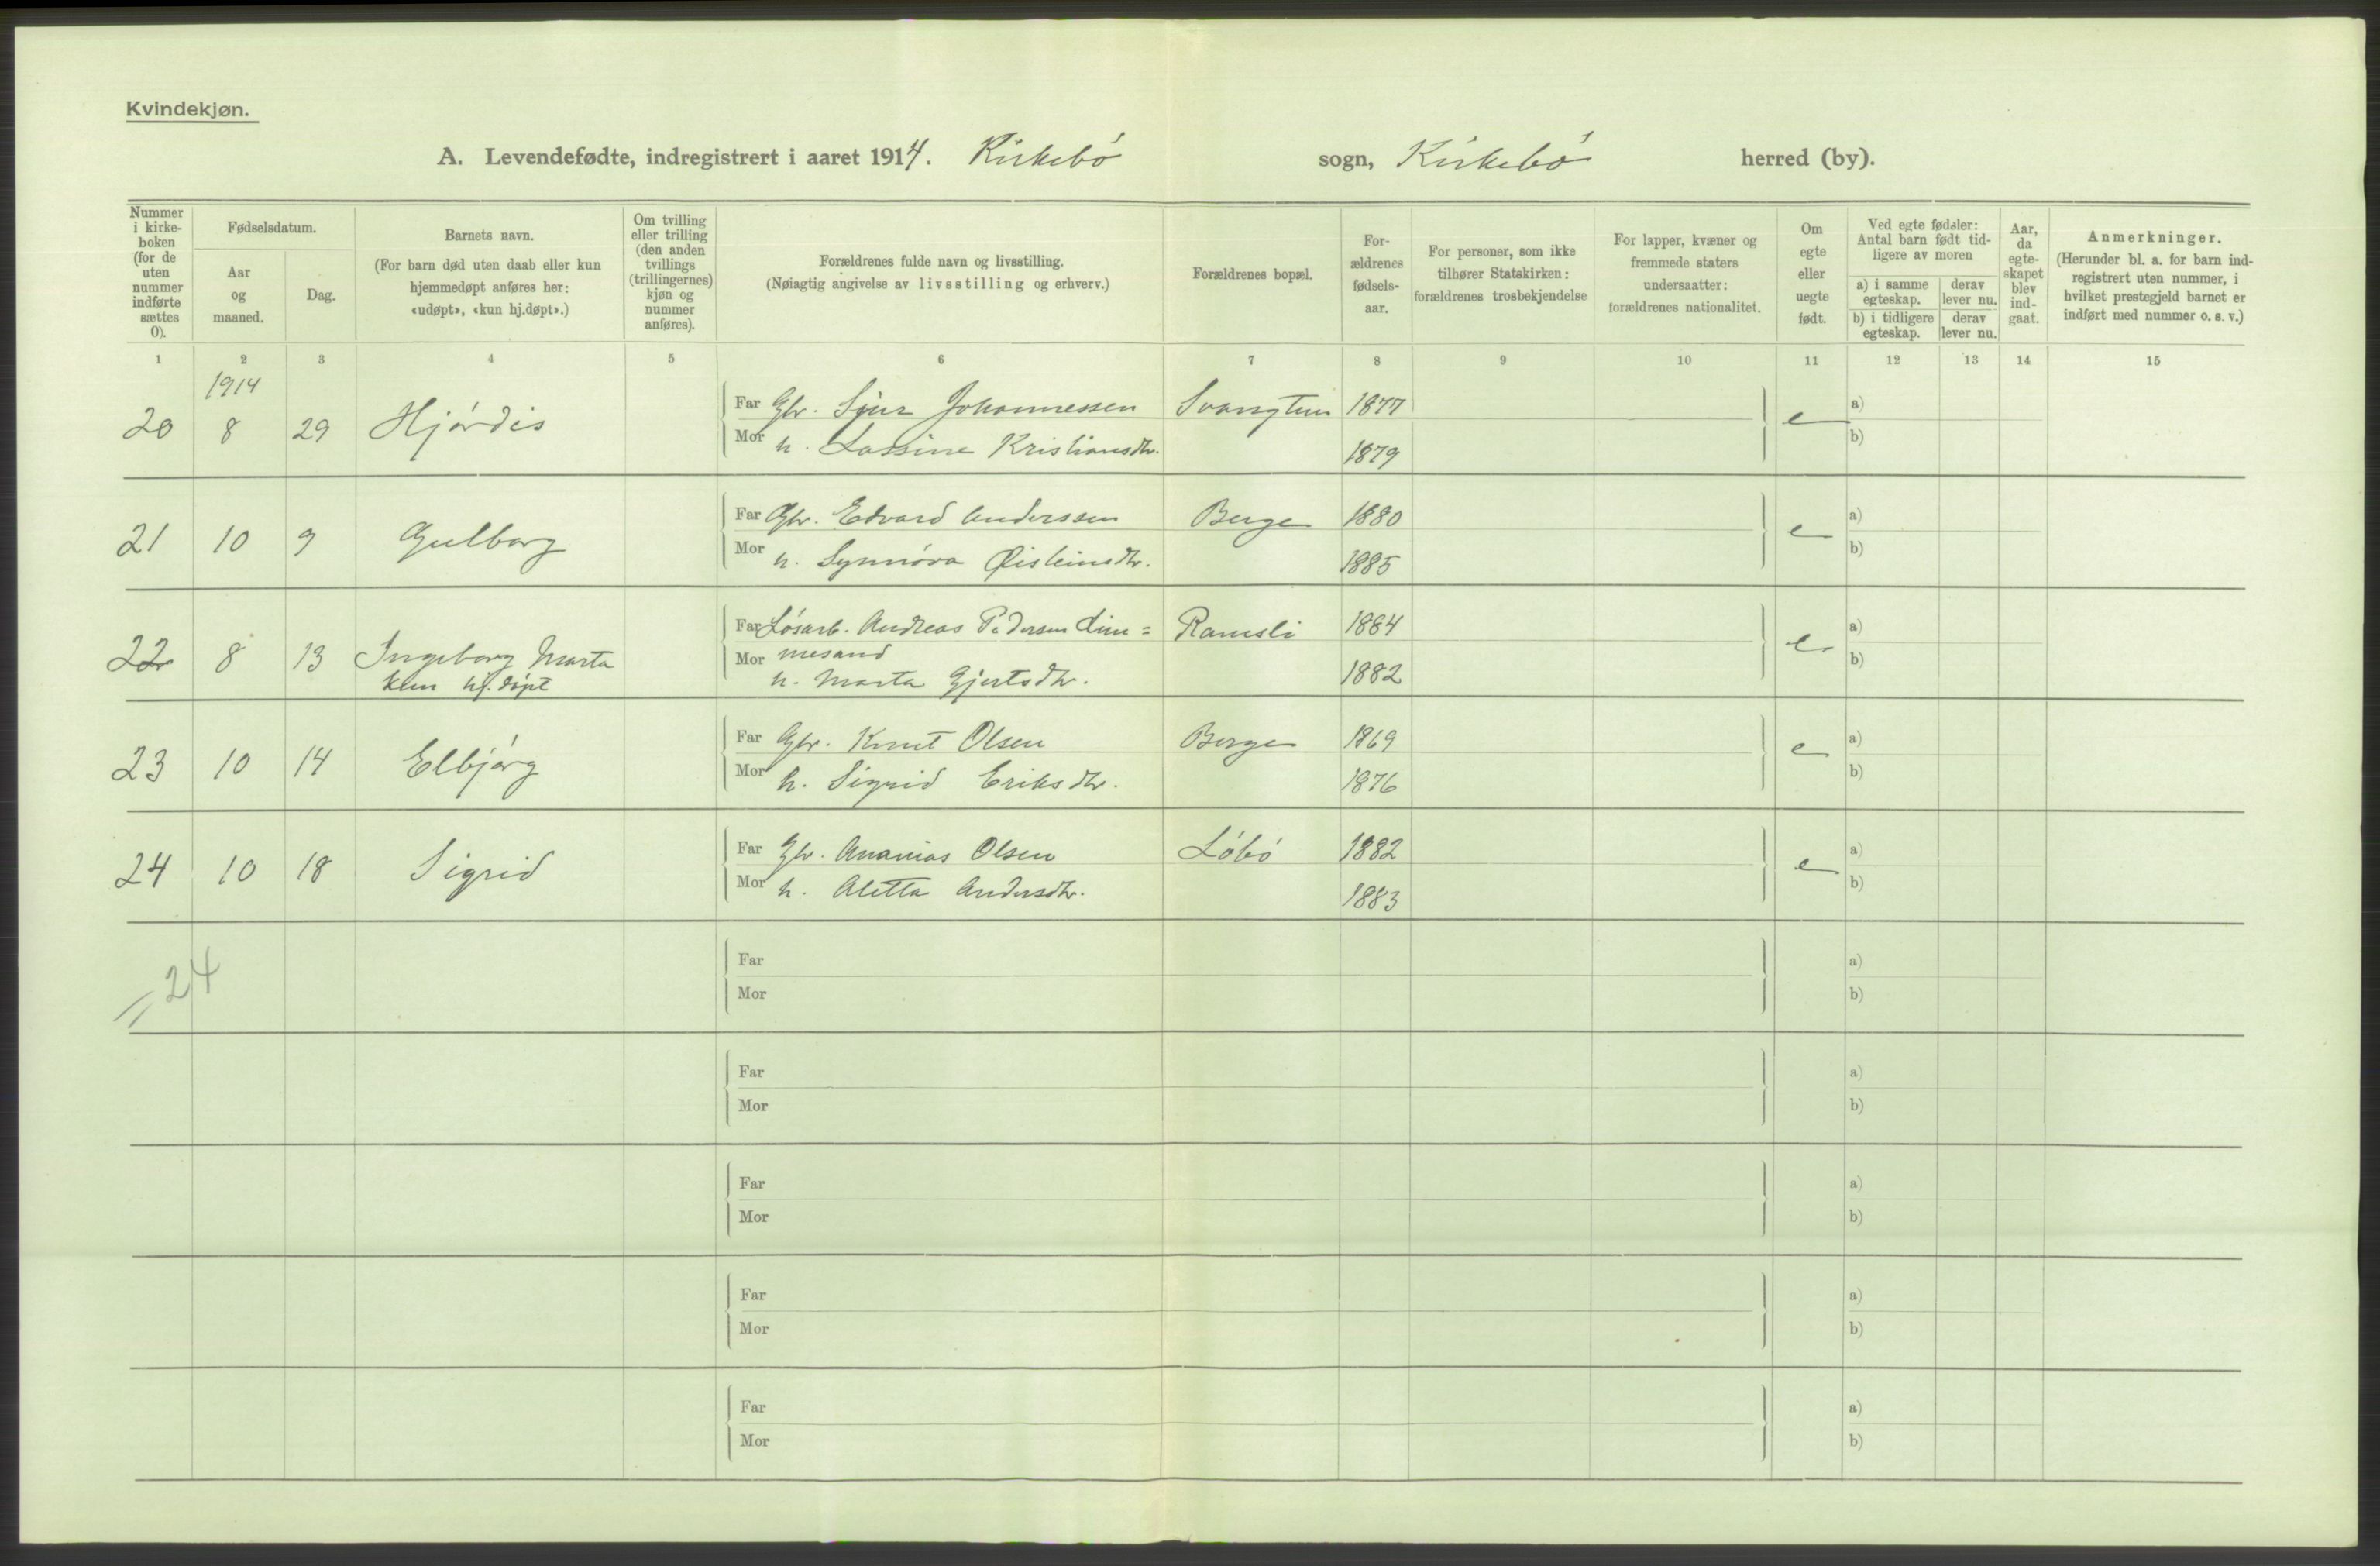 Kvindekjøn.
A. Levendefødte, indregistrert i aaret 1914. Kirkebö sogn, Kirkebö herred (by).
Nummer i kirke-boken (for de uten nummer indførte sættes 0).
Fødselsdatum.
Aar og maaned.
Dag.
Barnets navn.
(For barn død uten daab eller kun hjemmedøpt anføres her: «udøpt», «kun hj.døpt».)
Om tvilling eller trilling (den anden tvillings (trillingernes) kjøn og nummer anføres).
Forældrenes fulde navn og livsstilling.
(Nøiagtig angivelse av livsstilling og erhverv.)
Forældrenes bopæl.
For-ældrenes fødsels-aar.
For personer, som ikke tilhører Statskirken: forældrenes trosbekjendelse
For lapper, kvæner og fremmede staters undersaatter: forældrenes nationalitet.
Om egte eller uegte født.
Ved egte fødsler: Antal barn født tid-ligere av moren
a) i samme egteskap.
derav lever nu.
b) i tidligere egteskap.
derav lever nu.
Aar, da egte-skapet blev ind-gaat.
Anmerkninger.
(Herunder bl. a. for barn ind-registrert uten nummer, i hvilket prestegjeld barnet er indført med nummer o. s. v.)
1 2 3 4 5 6 7 8 9 10 11 12 13 14 15
1914
20 8 29 Hjördis Far Gbr. Sjur Johannessen Svangtun 1877 e a)
Mor h. Lassine Kristiansdtr. 1879 b)
21 10 9 Gulborg Far Gbr. Edvard Anderssen Berge 1880 e a)
Mor h. Synnöva Øisteinsdtr. 1885 b)
22 8 13 Ingeborg Marta Far Lösarb. Andreas Pedersen Lim= Ramsli 1884 e a)
kun hj.döpt Mor mesand
h. Marta Gjertsdtr. 1882 b)
23 10 14 Elbjörg Far Gbr. Knut Olsen Berge 1869 e a)
Mor h. Sigrid Eriksdtr. 1876 b)
24 10 18 Sigrid Far Gbr. Ananias Olsen Löbö 1882 e a)
Mor h. Aletta Andersdtr. 1883 b)
24 Far a)
Mor b)
Far a)
Mor b)
Far a)
Mor b)
Far a)
Mor b)
Far a)
Mor b)